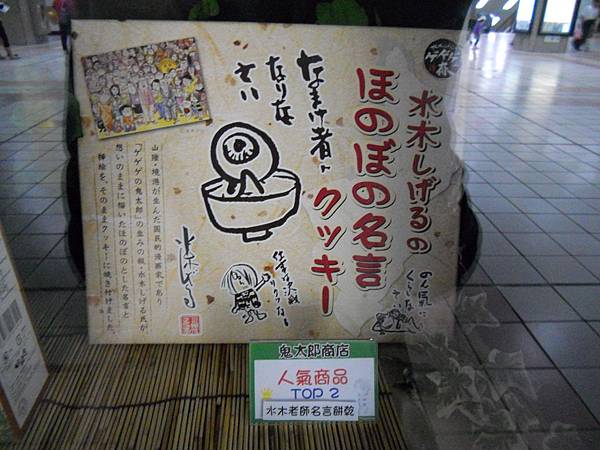 水木しげるの
ほのぼの名言
クッキー
なまけ者に
なりな
さい
のん気に
くらしな
さい
山陰・境港が生んだ国民的漫画家であり
「ゲゲゲの鬼太郎」の生みの親・水木しげる氏が、
想いのままに描いたほのぼのとした名言と
挿絵を、そのままクッキーに焼き付けました。
水木しげる
鬼太郎商店
人氣商品
TOP 2
水木老師名言餅乾